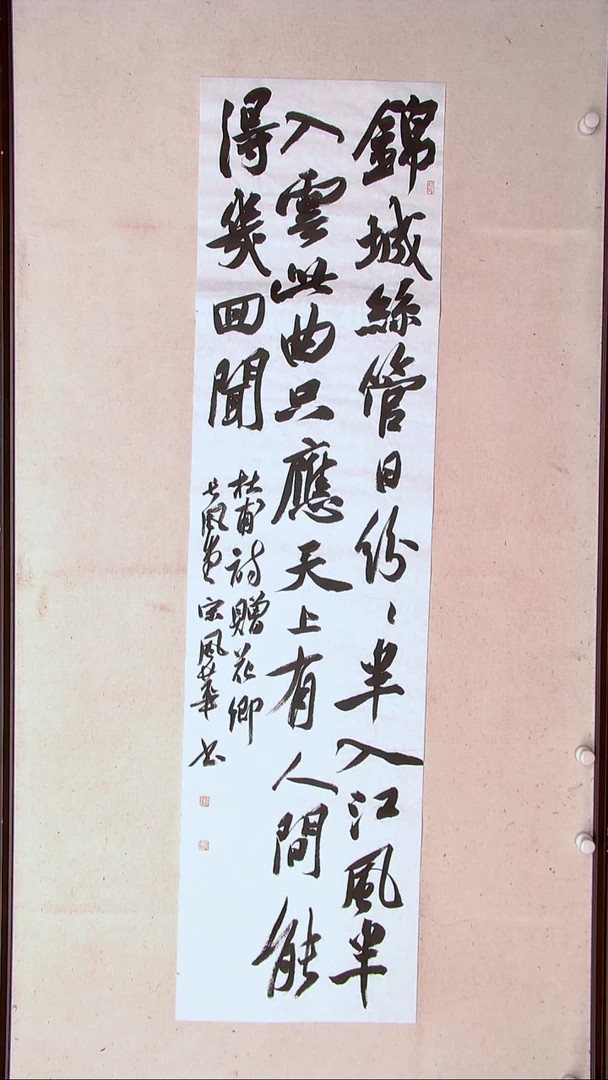 錦城絲管日份〻半入江風半
入雲此曲只應天上有人間能
得幾回聞
杜甫詩贈花卿
風堂宗風華書